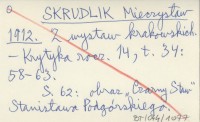 SKRUDLIK Mieczysław
1912. Z wystaw krakowskich.
– Krytyka rocz. 14, t. 34:
58-63.
S. 62: obraz „Czarny Staw"
Stanisława Podgórskiego.